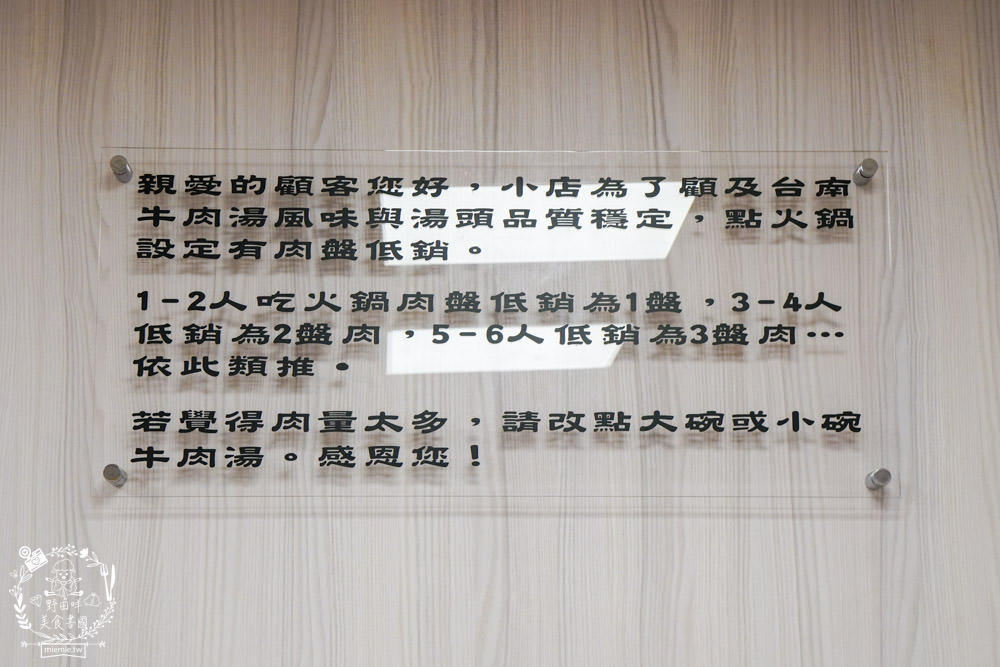 親愛的顧客您好，小店為了顧及台南
牛肉湯風味與湯頭品質穩定，點火鍋
設定有肉盤低銷。
1-2人吃火鍋肉盤低銷為1盤，3-4人
低銷為2盤肉，5-6人低銷為3盤肉⋯
依此類推。
若覺得肉量太多，請改點大碗或小碗
牛肉湯。感恩您！
美食書國
miemie.tw